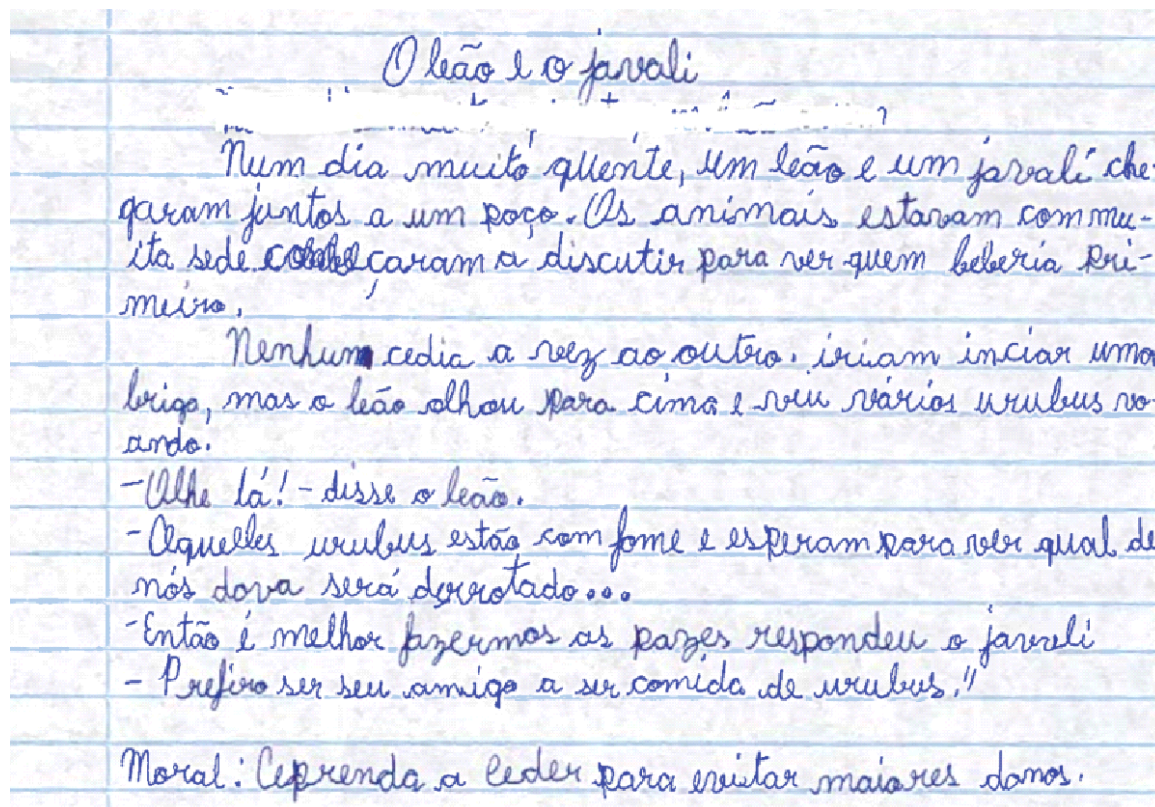 O leão e o javali
Num dia muito quente, um leão e um javali che-
garam juntos a um poço. Os animais estavam com mu-
ita sede começaram a discutir para ver quem beberia pri-
meiro.
Nenhum cedia a vez ao outro. iriam inciar uma
briga, mas o leão olhou para cima e viu vários urubus vo-
ando.
- Olhe lá! - disse o leão.
- Aqueles urubus estão com fome e esperam para ver qual de
nós dova será derrotado...
- Então é melhor fazermos as pazes respondeu o javali
- Prefiro ser seu amigo a ser comida de urubus."
Moral: Aprenda a ceder para evitar maiores danos.